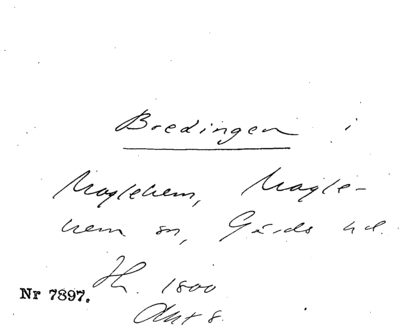 Bredingen i
Maglehem, Magle-
hem sn, Gärds hd.
Sk. 1800
Nr 7897.
Akt 8.